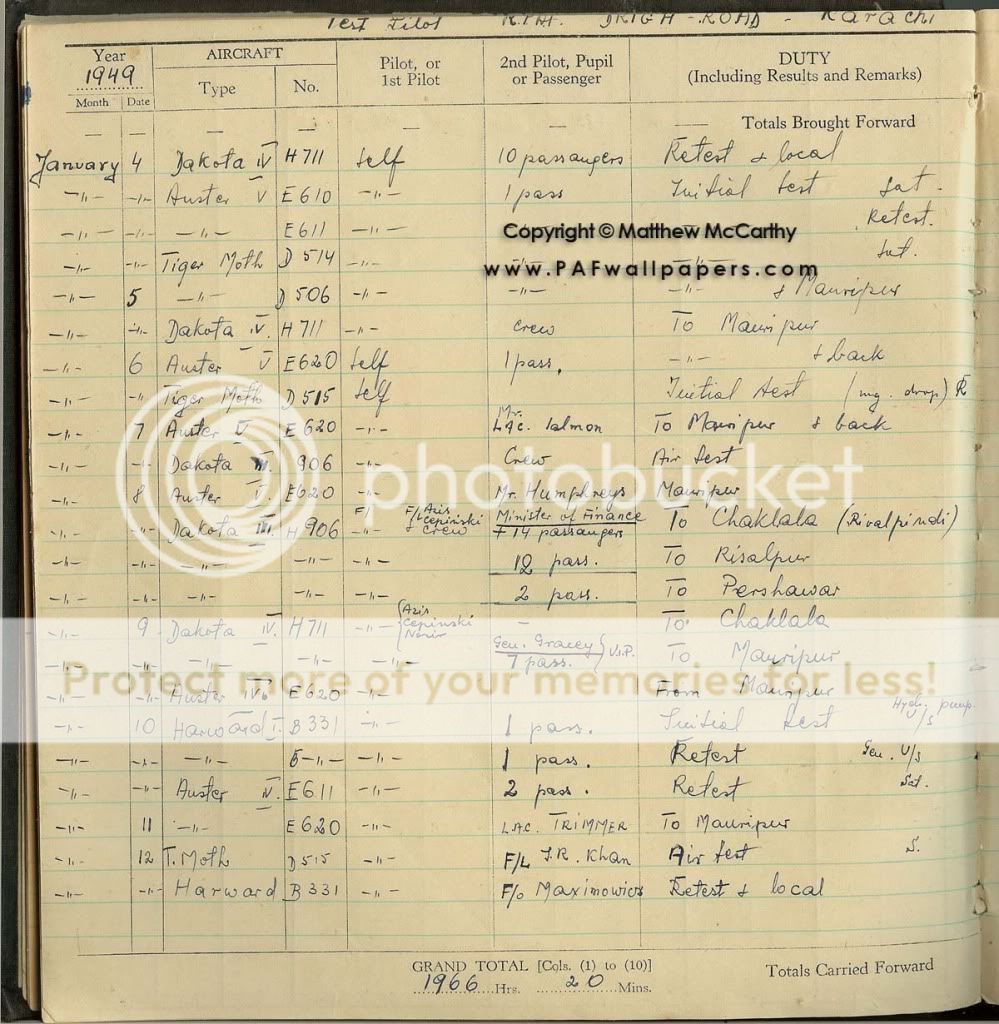 Test Pilot R.P.A.F. DRIGH-ROAD - Karachi
Year 1949 AIRCRAFT Pilot, or 1st Pilot 2nd Pilot, Pupil or Passenger DUTY (Including Results and Remarks)
Month Date Type No.
— — — — — — Totals Brought Forward
January 4 Dakota IV H711 Self 10 passangers Retest & local
-"- -"- Auster V E610 -"- 1 pass Initial test Sat.
-"- -"- -"- E611 -"- Retest.
Copyright © Matthew McCarthy
-"- -"- Tiger Moth D514 -"- Sat.
www.PAFwallpapers.com
-"- 5 -"- D506 -"- -"- -"- & Mauripur
-"- -"- Dakota IV. H711 -"- crew To Mauripur
-"- 6 Auster V E620 Self 1 pass. -"- & back
-"- -"- Tiger Moth D515 Self Initial test (mg. drop) R
-"- 7 Auster V E620 -"- Mr. L.A.C. Salmon To Mauripur & back
-"- -"- Dakota III. 906 -"- Crew Air test
photobucket
-"- 8 Auster V. E620 -"- Mr. Humphreys Mauripur
-"- -"- Dakota III. H906 -"- F/L Azis Cepinski crew Minister of Finance + 14 passangers To Chaklala (Rivalpindi)
-"- -"- -"- -"- -"- 12 pass. To Risalpur
-"- -"- -"- -"- -"- 2 pass. To Pershawar
-"- 9 Dakota IV. H711 -"- Azis Cepinski - To Chaklala
-"- -"- -"- -"- -"- Gen. Gracey 7 pass. V.I.P. To Mauripur
Protect more of your memories for less!
-"- -"- Auster E620 -"- From Mauripur
-"- 10 Harward B331 -"- 1 pass. Initial test Hydr. pump. U/S
-"- -"- -"- B-"- -"- 1 pass. Retest Gen. U/S
-"- -"- Auster V. E611 -"- 2 pass. Retest Sat.
-"- 11 -"- E620 -"- L.A.C. TRIMMER To Mauripur
-"- 12 T. Moth D515 -"- F/L J.R. Khan Air test S.
-"- -"- Harward B331 -"- F/o Maximowics Retest & local
GRAND TOTAL [Cols. (1) to (10)] Totals Carried Forward
1966 Hrs. 20 Mins.